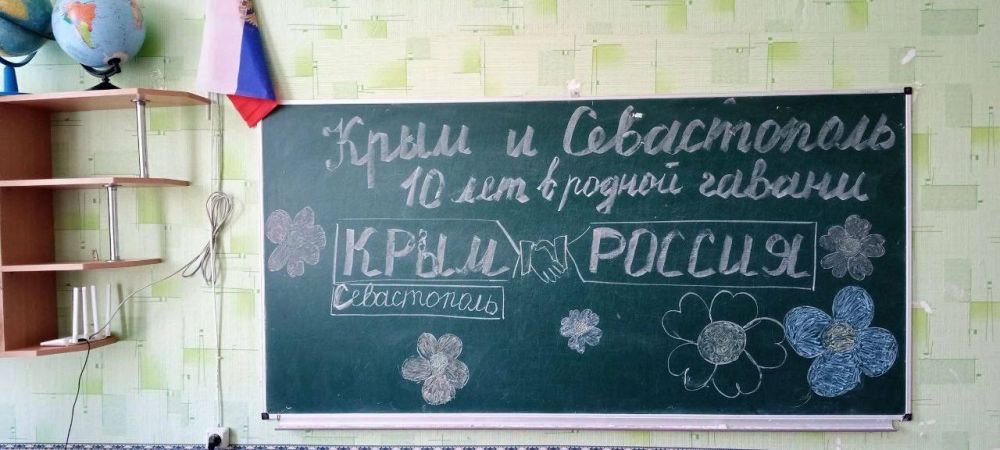 Крым и Севастополь
10 лет в родной гавани
КРЫМ РОССИЯ
Севастополь